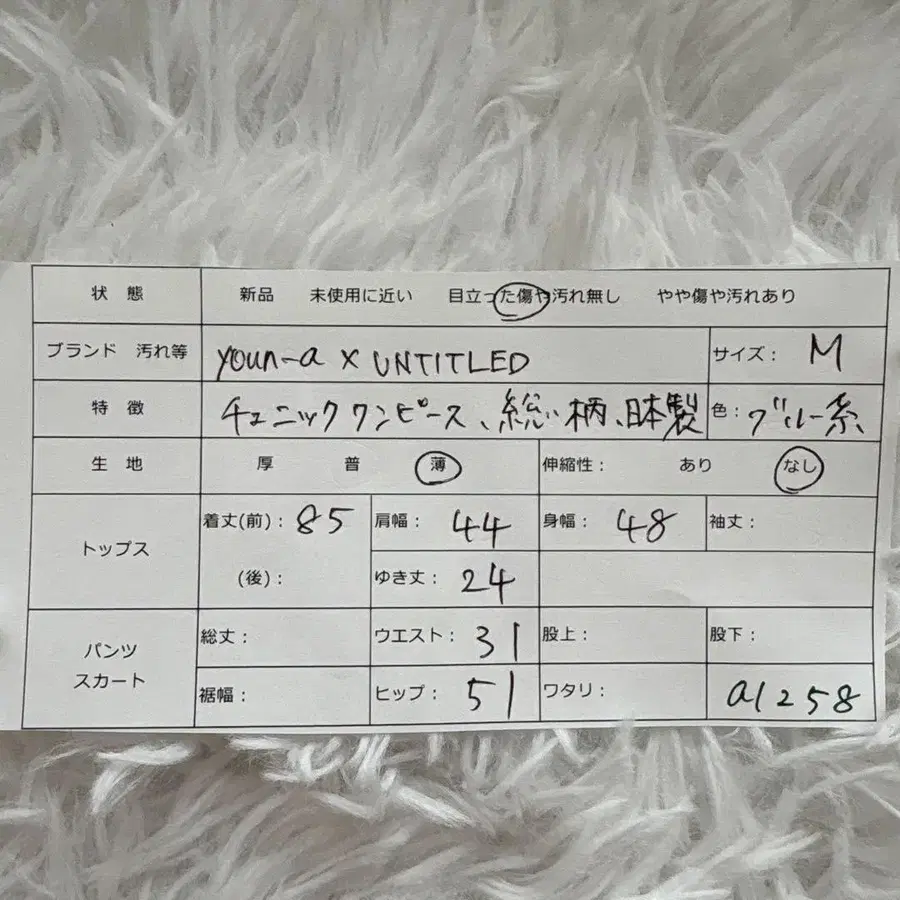 状態 新品 未使用に近い 目立った傷や汚れ無し やや傷や汚れあり
ブランド 汚れ等 youn-a × UNTITLED サイズ: M
特徴 チュニックワンピース、総柄、日本製 色: ブルー系
生地 厚 普 薄 伸縮性: あり なし
トップス 着丈(前): 85 肩幅: 44 身幅: 48 袖丈:
(後): ゆき丈: 24
パンツ スカート 総丈: ウエスト: 31 股上: 股下:
裾幅: ヒップ: 51 ワタリ: a1258